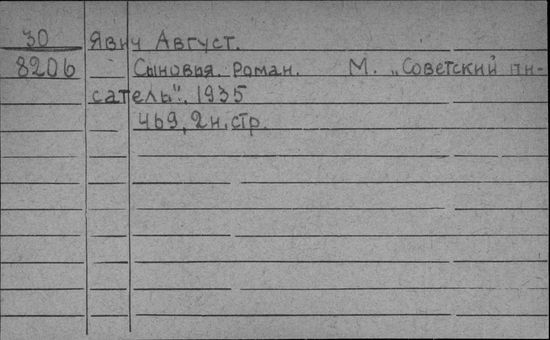 30 Явич Август.
8206 Сыновья. Роман. М. „Советский пи-
сатель". 1935
469, 2 н. стр.